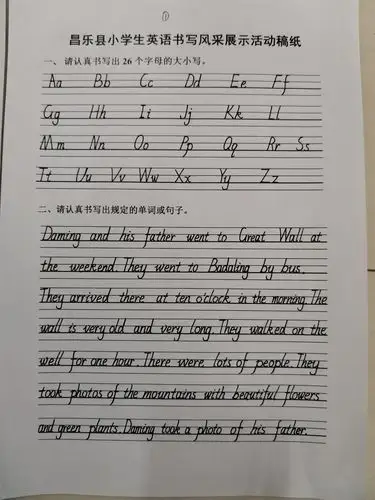 ①
昌乐县小学生英语书写风采展示活动稿纸
一、请认真书写出 26 个字母的大小写。
Aa Bb Cc Dd Ee Ff
Gg Hh Ii Jj Kk Ll
Mm Nn Oo Pp Qq Rr Ss
Tt Uu Vv Ww Xx Yy Zz
二、请认真书写出规定的单词或句子。
Daming and his father went to Great Wall at
the weekend. They went to Badaling by bus.
They arrived there at ten o'clock in the morning. The
wall is very old and very long. They walked on the
well for one hour. There were lots of people. They
took photos of the mountains with beautiful flowers
and green plants. Daming took a photo of his father.